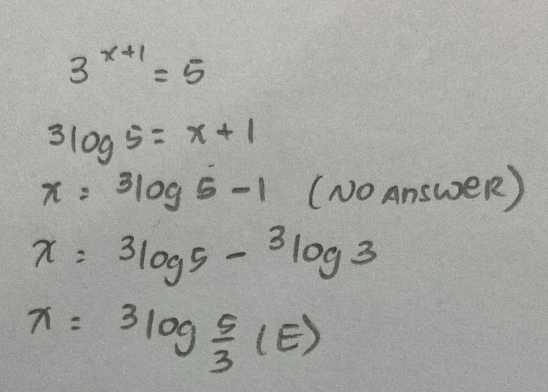 3^{x+1} = 5
³log 5 = x + 1
x = ³log 5 - 1 (NO ANSWER)
x = ³log 5 - ³log 3
x = ³log 5/3 (E)